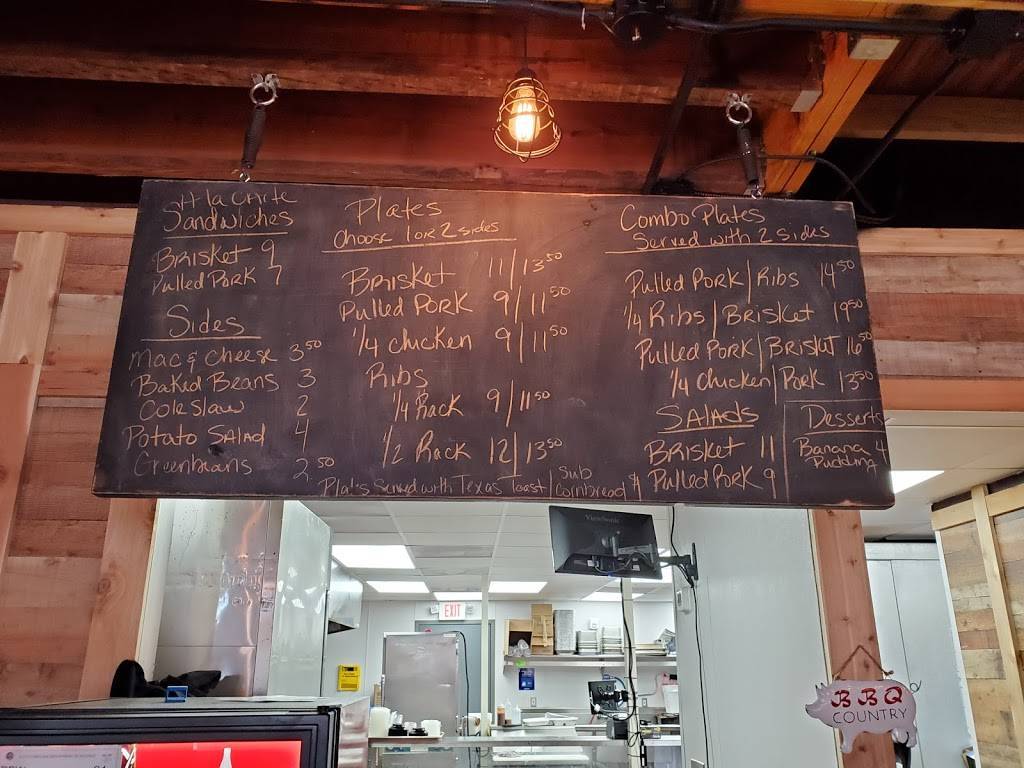 A la CArte
Sandwiches
Brisket 9
Pulled Pork 7
Sides
Mac & Cheese 3.50
Baked Beans 3
Cole Slaw 2
Potato SALAD 4
Greenbeans 2.50
Plates
Choose 1 or 2 sides
Brisket 11/13.50
Pulled Pork 9/11.50
1/4 chicken 9/11.50
Ribs
1/4 Rack 9/11.50
1/2 Rack 12/13.50
Plates Served with Texas Toast / Sub Cornbread $1
Combo Plates
Served with 2 sides
Pulled Pork/Ribs 14.50
1/4 Ribs/Brisket 19.50
Pulled Pork/Briskit 16.50
1/4 Chicken/Pork 13.50
SALAds
Brisket 11
Pulled Pork 9
Desserts
Banana Pudding 4
ViewSonic
EXIT
BBQ
COUNTRY